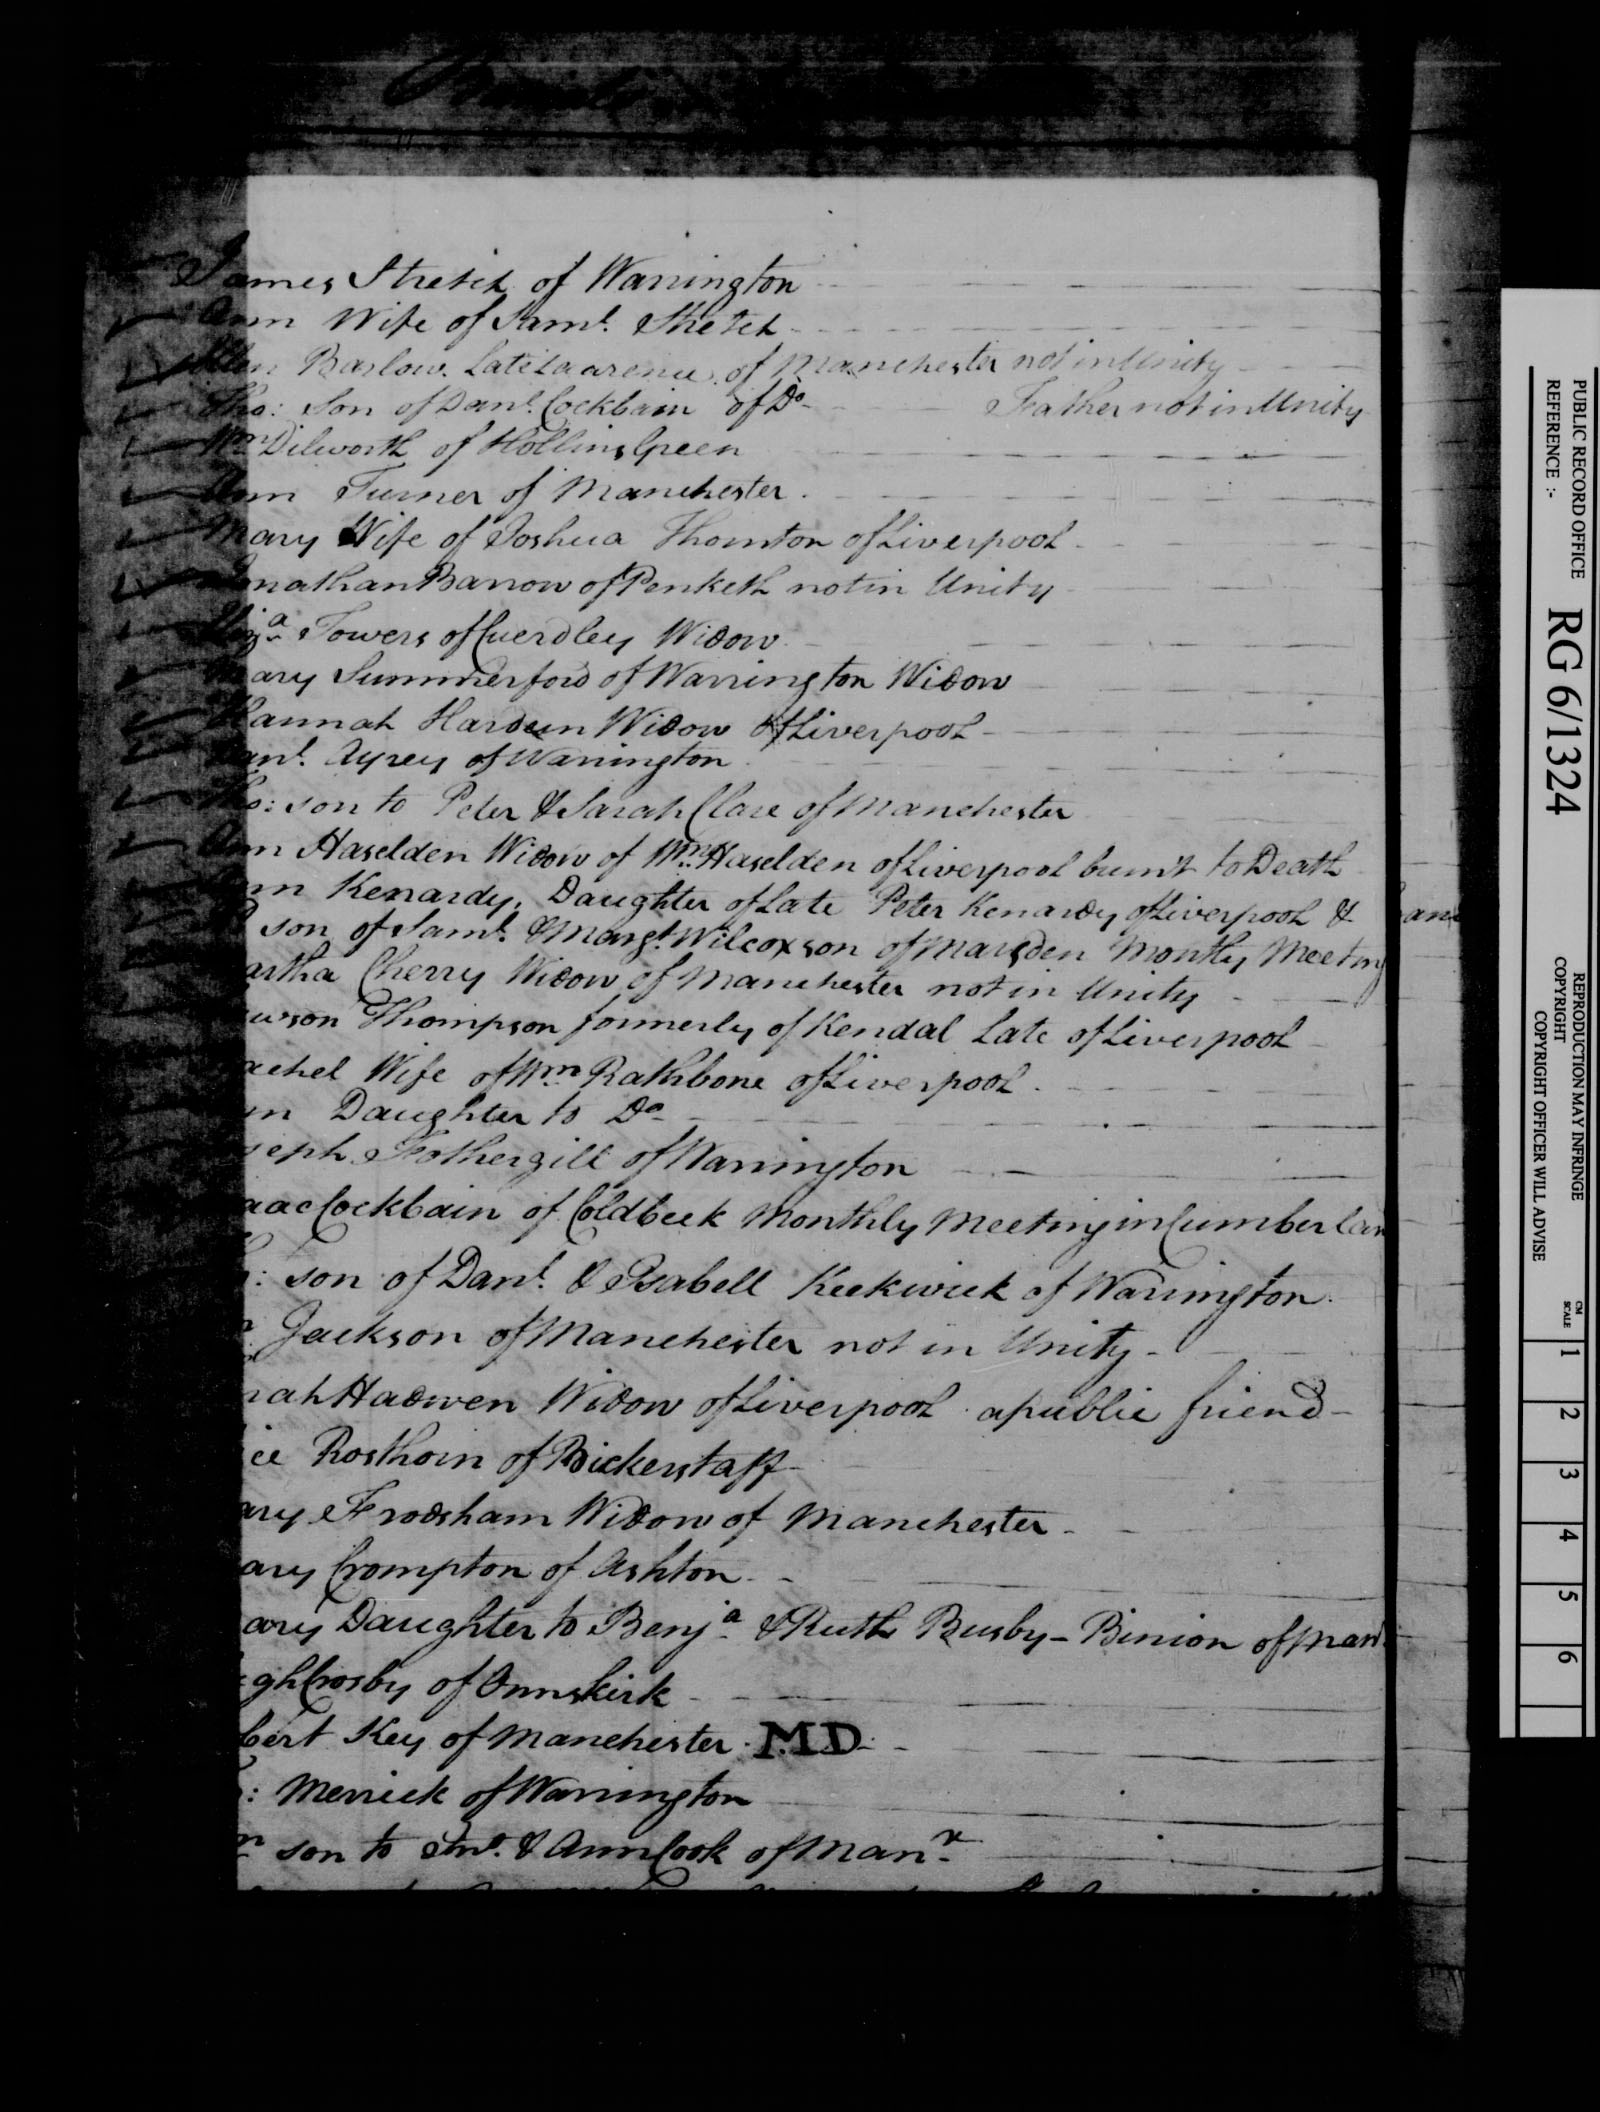 James Stretch of Warrington
Ann Wife of Saml. Stretch
Ellen Barlow Late Laarence of Manchester not in Unity
Tho: Son of Danl. Cockbain of Do. Father not in Unity
Wm Dilworth of Hollins Green
Ann Turner of Manchester
Mary Wife of Joshua Thornton of Liverpool
Jonathan Barrow of Penketh not in Unity
Eliza. Towers of Cuerdley Widow
Mary Summerford of Warrington Widow
Hannah Hardein Widow of Liverpool
Danl. Ayrey of Warrington
Tho: son to Peter & Sarah Clare of Manchester
Ann Haselden Widow of Wm Haselden of Liverpool burn't to Death
Ann Kenardy, Daughter of Late Peter Kenardy of Liverpool &
son of Saml. & Margt. Wilcoxson of Marsden Monthly Meeting
artha Cherry Widow of Manchester not in Unity
wson Thompson formerly of Kendal Late of Liverpool
achel Wife of Wm Rathbone of Liverpool
nn Daughter to Do
seph Fothergill of Warrington
aac Cockbain of Coldbeck Monthly Meeting in Cumberlan
: son of Danl. & Isabell Keekwick of Warrington
Jackson of Manchester not in Unity
nah Hadwen Widow of Liverpool a public friend
ice Rosthorn of Bickerstaff
ary Frodsham Widow of Manchester
ary Crompton of Ashton
ary Daughter to Benja. & Ruth Busby-Binion of Man
gh Crosby of Ormskirk
bert Key of Manchester. M.D.
: Merrick of Warrington
m son to Jno. & Ann Cook of Manr.
PUBLIC RECORD OFFICE
REFERENCE :-
RG 6/1324
REPRODUCTION MAY INFRINGE
COPYRIGHT
COPYRIGHT OFFICER WILL ADVISE
CM
SCALE
1
2
3
4
5
6